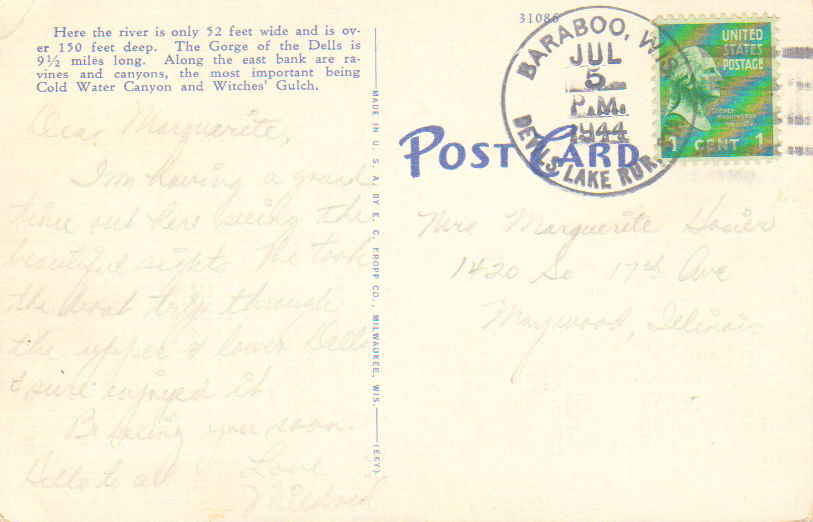 Here the river is only 52 feet wide and is ov-
er 150 feet deep. The Gorge of the Dells is
9½ miles long. Along the east bank are ra-
vines and canyons, the most important being
Cold Water Canyon and Witches' Gulch.
Dear Marguerite,
I'm having a grand
time out here seeing the
beautiful sights. We took
the boat trip through
the upper & lower Dells
& sure enjoyed it.
Be seeing you soon.
Hello to all
Love
MADE IN U. S. A. BY E. C. KROPP CO., MILWAUKEE, WIS.
(EKY)
31086
POST CARD
BARABOO, WIS
JUL
5
P.M.
1944
DEVILS LAKE RUR. STA
UNITED
STATES
POSTAGE
1 CENT 1
Mrs Marguerite Hosier
1420 So 17th Ave
Maywood, Illinois